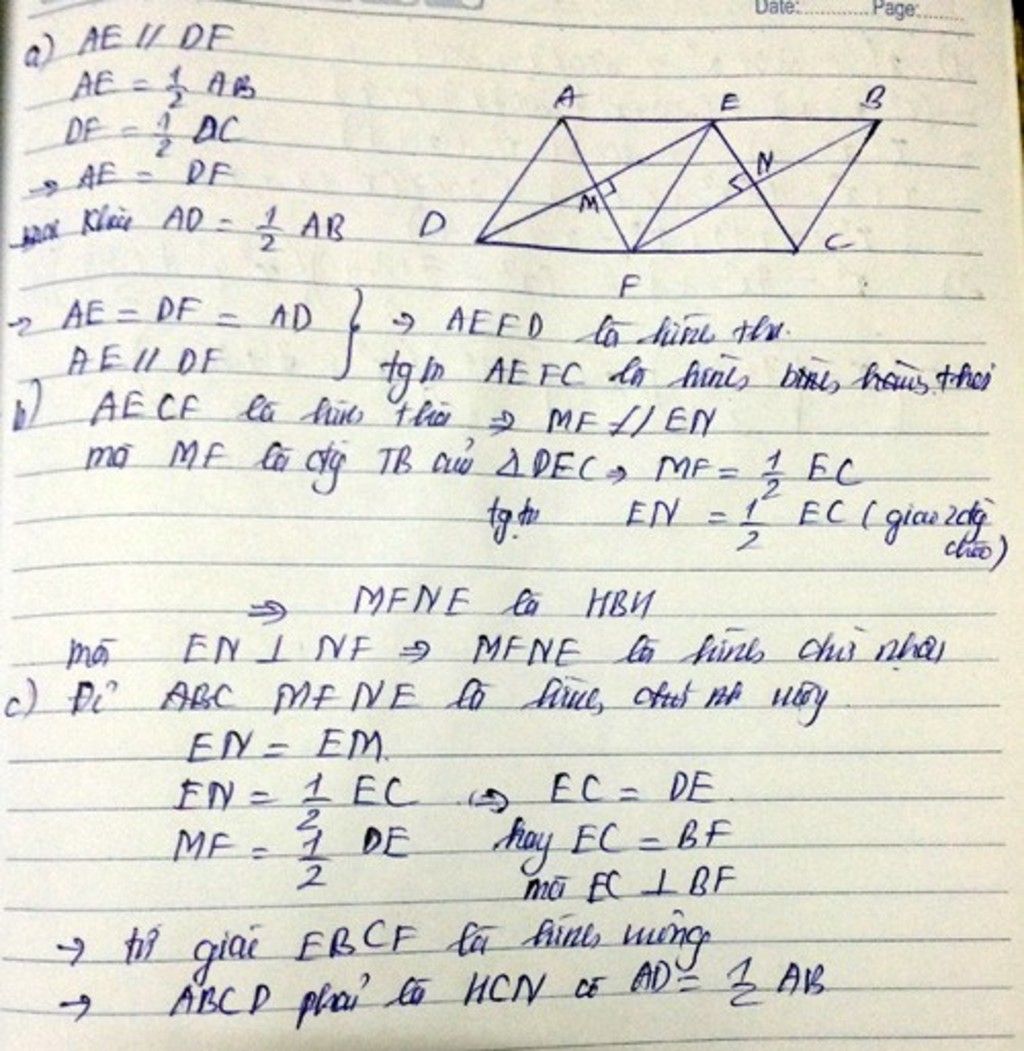 Date:............ Page:.......
a) AE // DF
AE = 1/2 AB
DF = 1/2 DC
→ AE = DF
AD = 1/2 AB
A E B
M N
D F C
→ AE = DF = AD } → AEFD là hình thoi.
AE // DF } tg tự AEFC là hình thoi
b) AECF là hình thoi ⇒ MF // EN
mà MF là đg TB của ΔDEC → MF = 1/2 EC
tg tự EN = 1/2 EC (giao 2 đg chéo)
⇒ MFNE là HBH
mà EN ⊥ NF ⇒ MFNE là hình chữ nhật
c) Để MFNE là hình vuông
EN = EM
EN = 1/2 EC ⇒ EC = DE
MF = 1/2 DE hay EC = BF
mà EC ⊥ BF
→ tứ giác EBCF là hình vuông
→ ABCD phải là HCN có AD = 1/2 AB